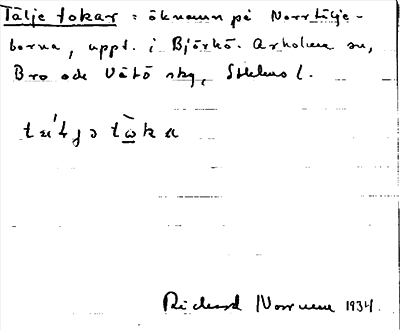 Tälje tokar = öknamn på Norrtälje-
borna, uppt. i Björkö-Arholma sn,
Bro och Vätö skg, Sthlms l.
Richard 1934.